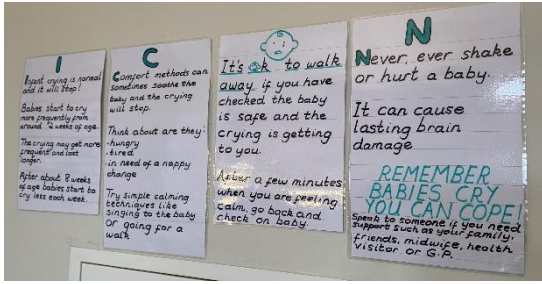 I
Infant crying is normal
and it will stop!
Babies start to cry
more frequently from
around 2 weeks of age.
The crying may get more
frequent and last
longer.
After about 8 weeks
of age babies start to
cry less each week.
C
Comfort methods can
sometimes soothe the
baby and the crying
will stop.
Think about are they:
-hungry
-tired
-in need of a nappy
change
Try simple calming
techniques like
singing to the baby
or going for a
walk
It's ok to walk
away if you have
checked the baby
is safe and the
crying is getting
to you.
After a few minutes
when you are feeling
calm, go back and
check on baby.
N
Never, ever shake
or hurt a baby.
It can cause
lasting brain
damage
REMEMBER
BABIES CRY
YOU CAN COPE!
Speak to someone if you need
support such as your family,
friends, midwife, health
visitor or G.P.